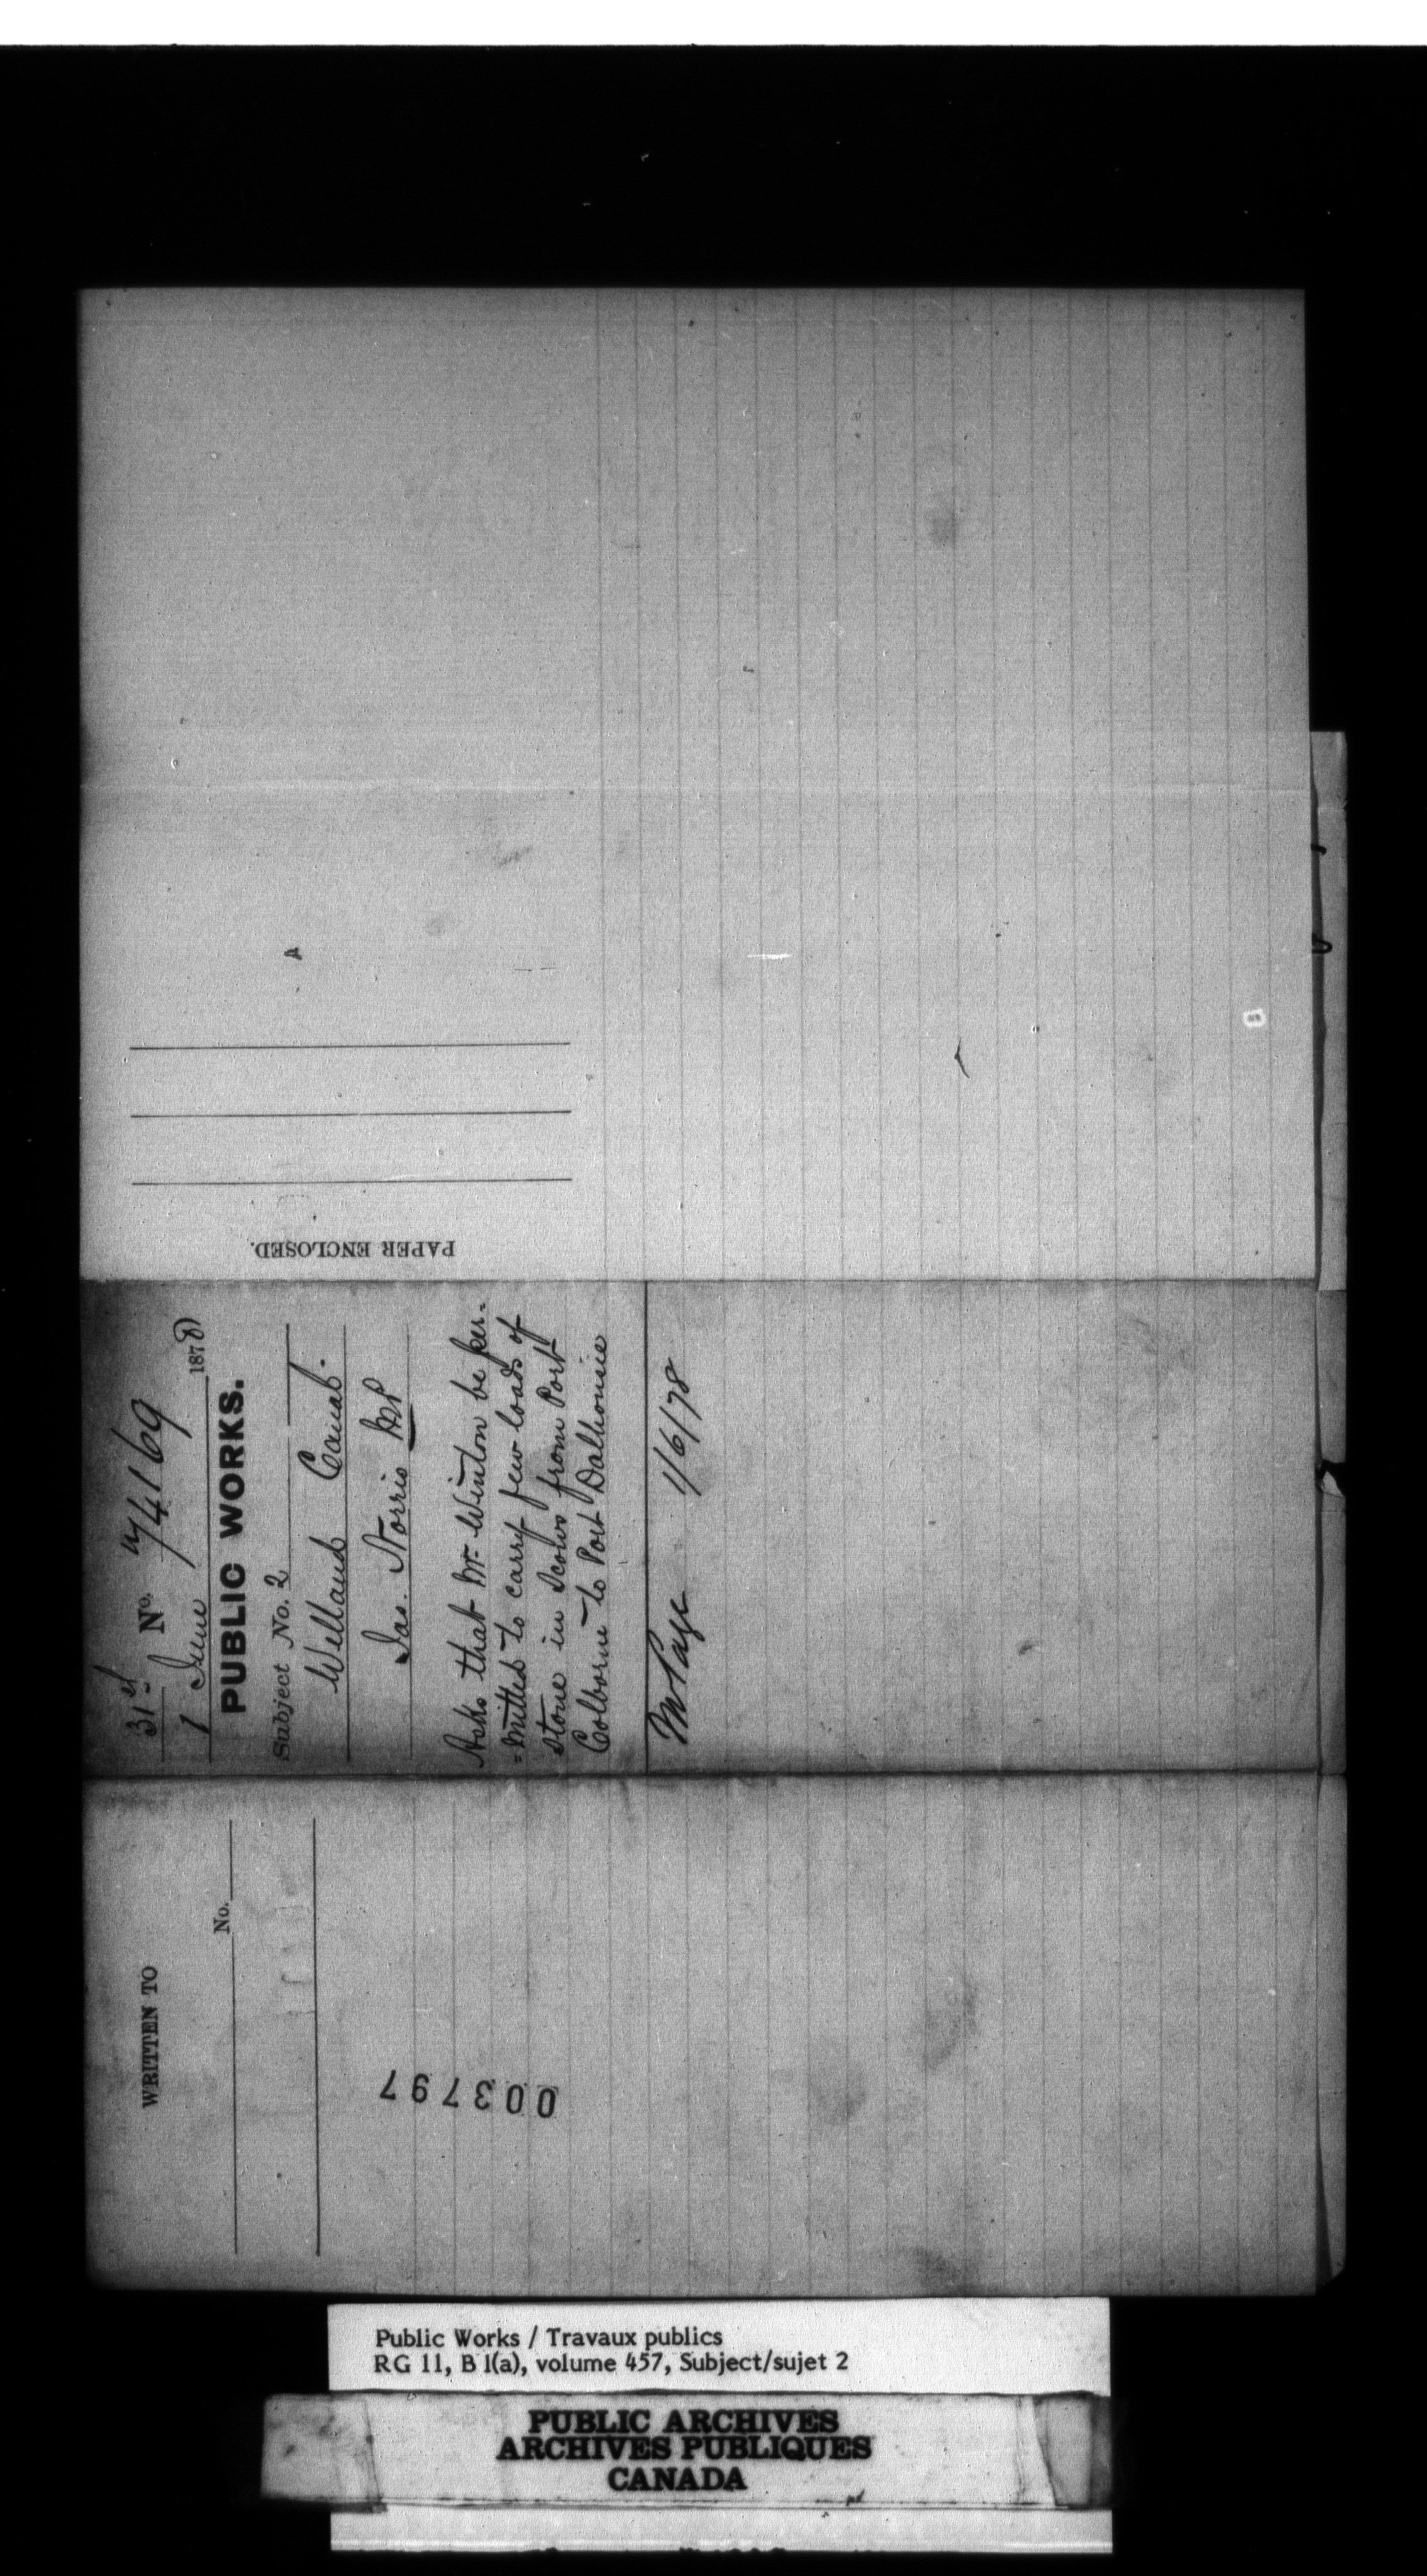 PAPER ENCLOSED.
31st No. 74169
1 June 1878
PUBLIC WORKS.
Subject No. 2
Welland Canal.
Jas. Norris MP
Asks that Mr Winton be per-
=mitted to carry few loads of
stone in Scows from Port
Colborne to Port Dalhousie
Mr Page 1/6/78
WRITTEN TO
No.
003797
Public Works / Travaux publics
RG 11, B 1(a), volume 457, Subject/sujet 2
PUBLIC ARCHIVES
ARCHIVES PUBLIQUES
CANADA